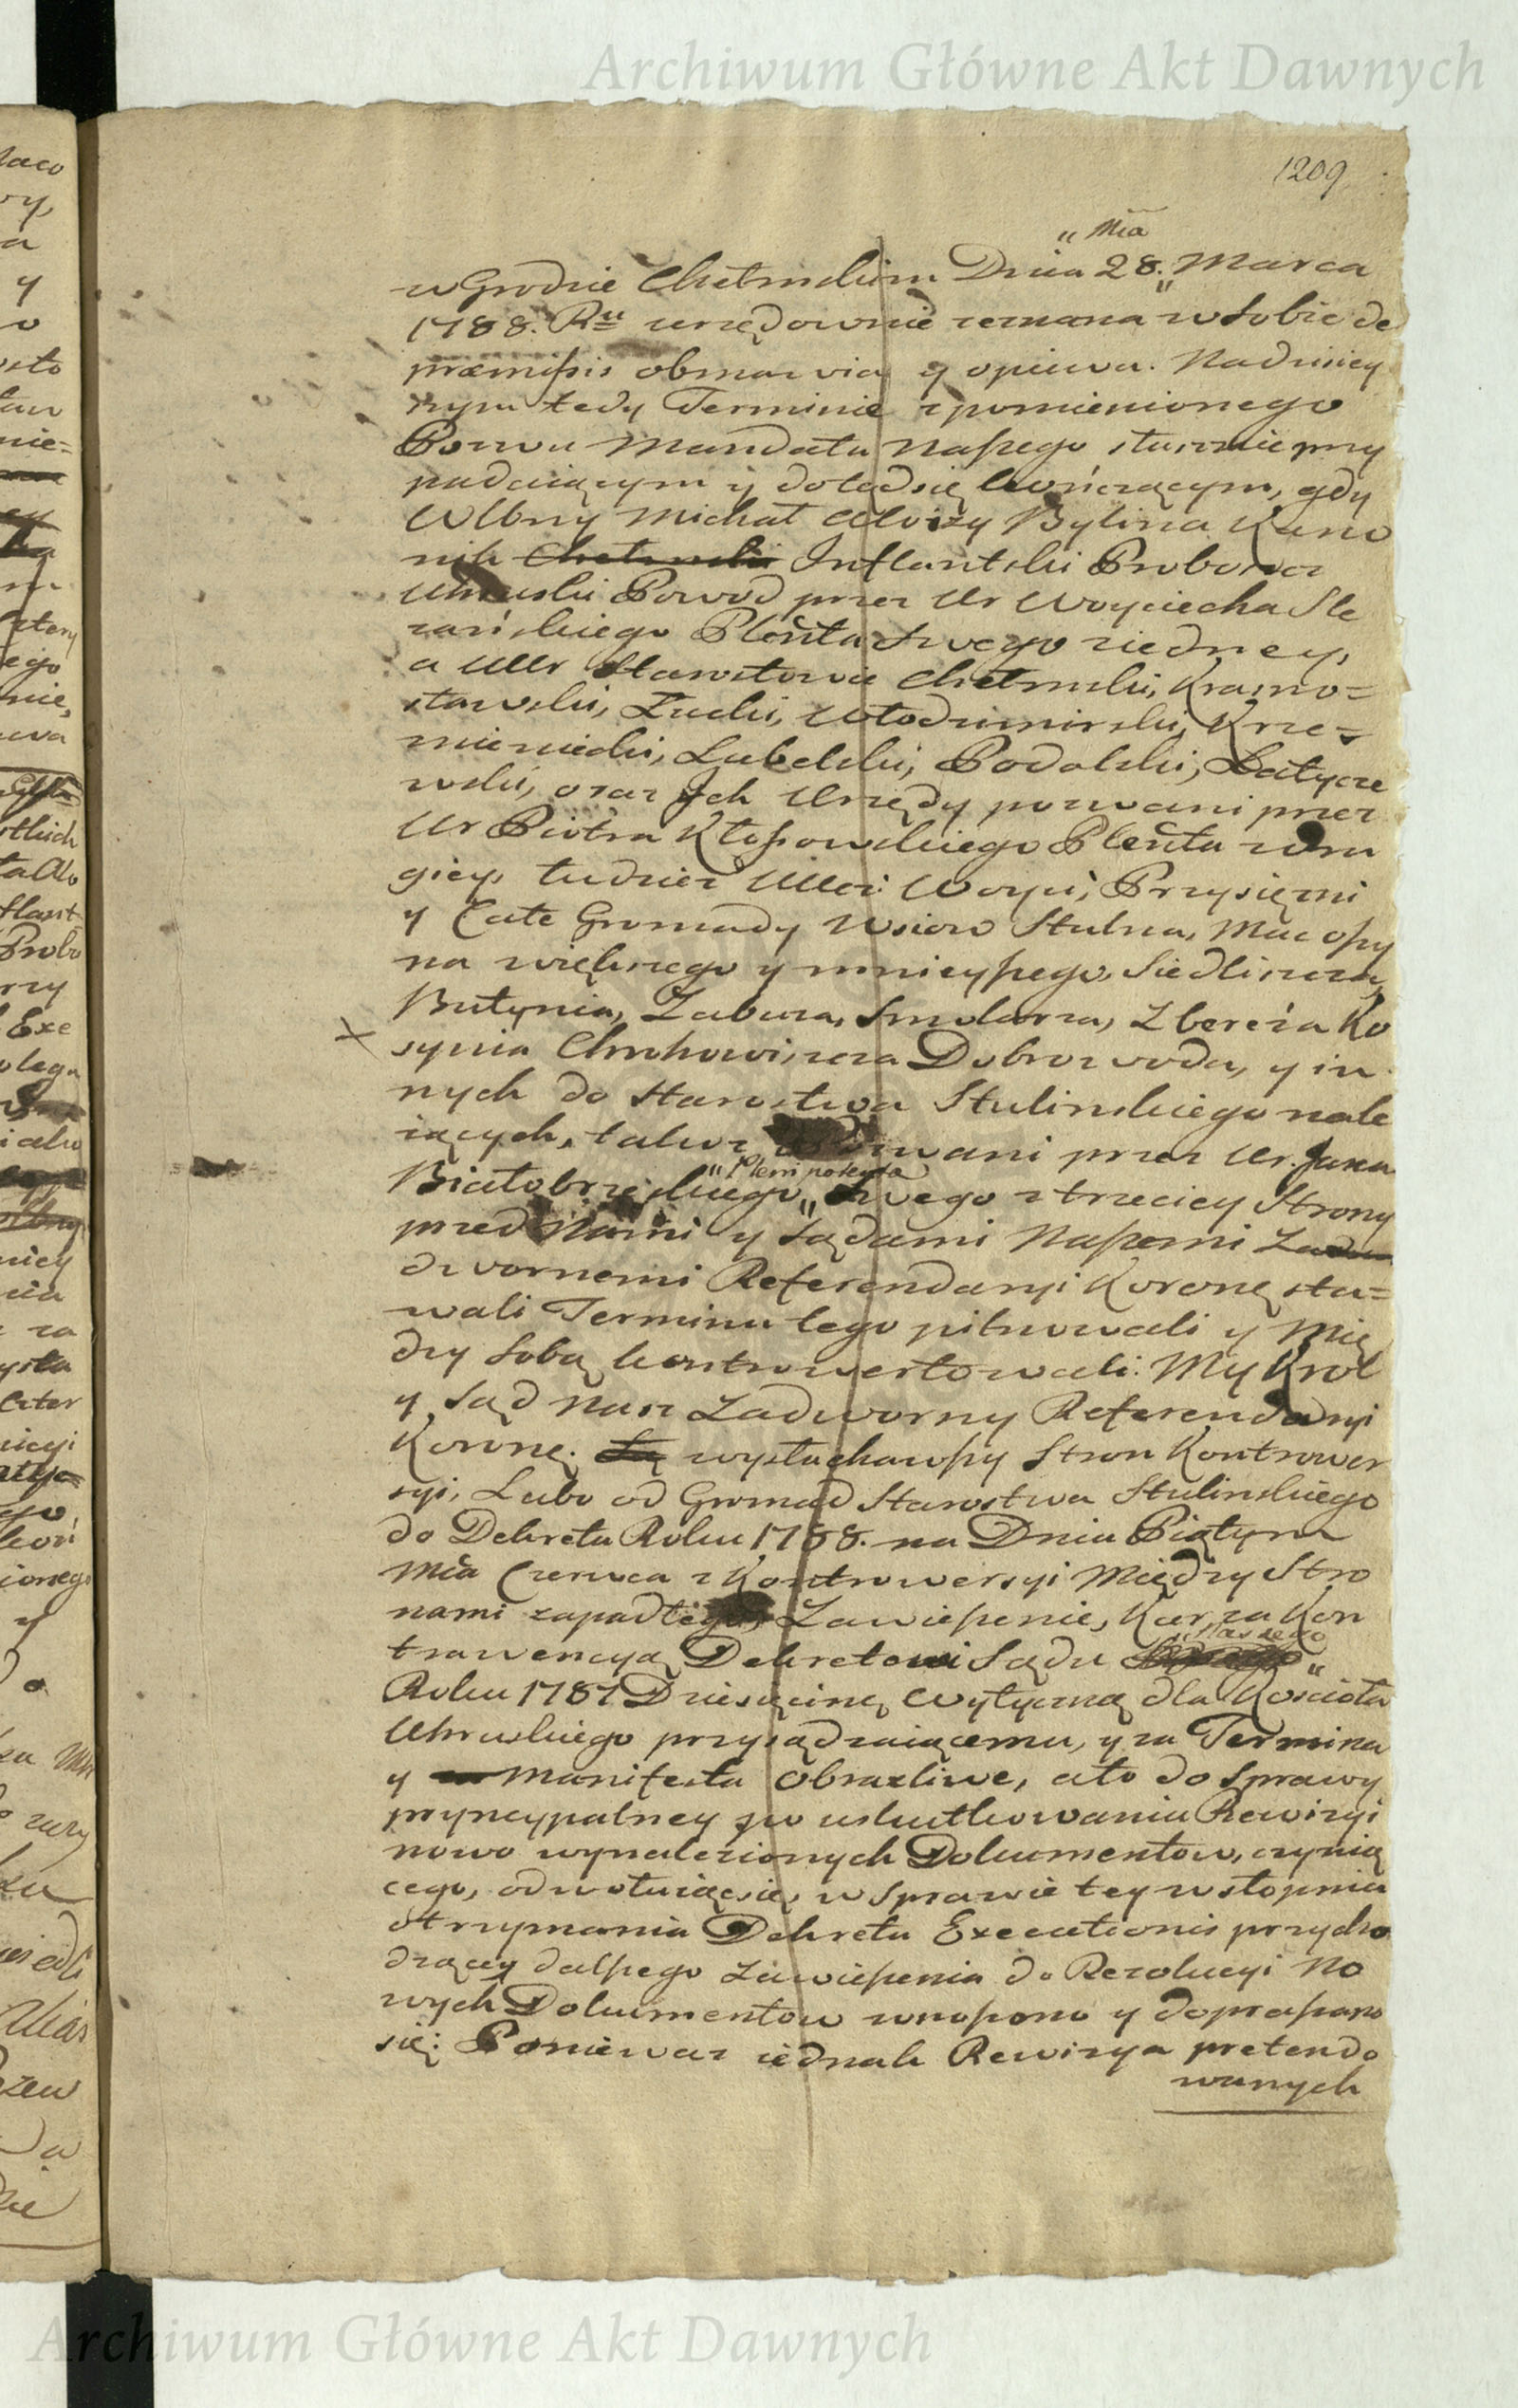 Archiwum Główne Akt Dawnych
1209
" Mca
w Grodzie Chełmskim Dnia 28. Marca
1788. Ru urzędownie zeznana w sobie de
præmissis obmawia y opiewa. Na dzisiey
szym tedy Terminie z pomienionego
Pozwu Mandatu Naszego słusznie przy
padaiącym y dotąd się kończącym, gdy
Wlbny Michał Aloizy Bylina Kano
nik Chełmski Inflantski Proboszcz
Uhruski Powod przez Ur Woyciecha Sle
zańskiego Plenta swego ziedney,
a UUr Starostowie Chełmski, Krasno=
stawski, Łucki, Włodzimirski, Krze=
mieniecki, Lubelski, Podolski, Latycze
wski, oraz Jch Urzędy pozwani przez
Ur Piotra Kłossowskiego Plenta zdru
giey, tudzież Ucci: Woyci, Przysiężni
y Całe Gromady Wsiow Stulna, Macoszy
na większego y mnieyszego, Siedliszcza,
Butynia, Zabuza, Smolarza, Zbereża Ko
synia Chrhowiszcza Dobrozwoda, y in
nych do Starostwa Stulinskiego nale
żących, także pozwani przez Ur. Jana
"Plenipotenta
Białobrzeskiego" swego z trzeciey Strony
przed Nami y Sądami Naszemi Zadw
dwornemi Referendaryi Koronę sta=
wali Terminu tego pilnowali y Mię
dzy sobą kontrowertowali. My Krol
y Sąd Nasz Zadworny Referendaryi
Koronę. Są wysłuchawszy Stron Kontrower
syi, Lubo od Gromad Starostwa Stulinskiego
do Dekretu Roku 1788. na Dniu Piątym
Mca Czerwca z Kontrowersyi Między Stro
nami zapadłego, Zawieszenie, Kar za Kon
"Naszego
trawencyą Dekretowi Sądu "
Roku 1787 Dziesięcinę Wytyczną dla Kościoła
Uhruskiego przysądzaiącemu, y za Termina
y Manifesta Obraźliwe, ato do Sprawy
pryncypalney po uskutkowaniu Rewizyi
nowo wynalezionych Dokumentow, czynią
cego, odwołuiąc się, w Sprawie tey w stopniu
otrzymania Dekretu Executionis przycho
dzącey dalszego zawieszenia do Rezolucyi No
wych Dokumentow wnoszono y dopraszano
się: Ponieważ iednak Rewizya pretendo
wanych
Archiwum Główne Akt Dawnych